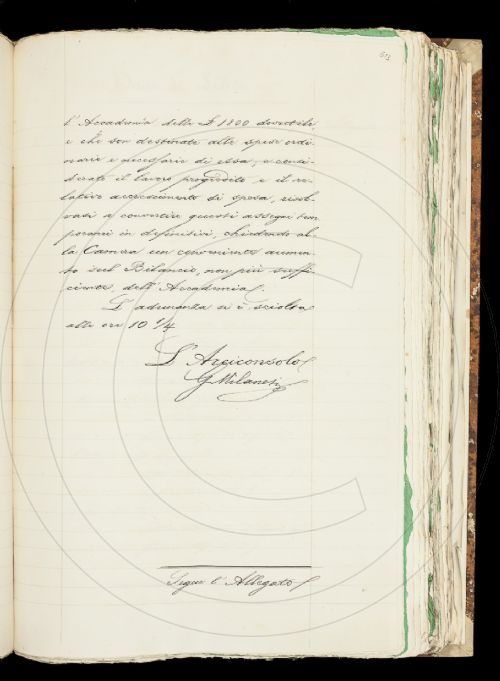 613
l'Accademia delle £ 1800 dovutile,
e che son destinate alle spese ordi
narie e necessarie di essa; e consi
derato il lavoro progredito, e il re
lativo accrescimento di spesa, risol
vasi a convertire questi assegni tem
poranei in definitivi, chiedendo al
la Camera un conveniente aumen
to sul Bilancio, non più suffi
ciente, dell'Accademia.
L'adunanza si è sciolta
alle ore 10 1/4.
L'Arciconsolo
G Milanesi
Segue l'Allegato